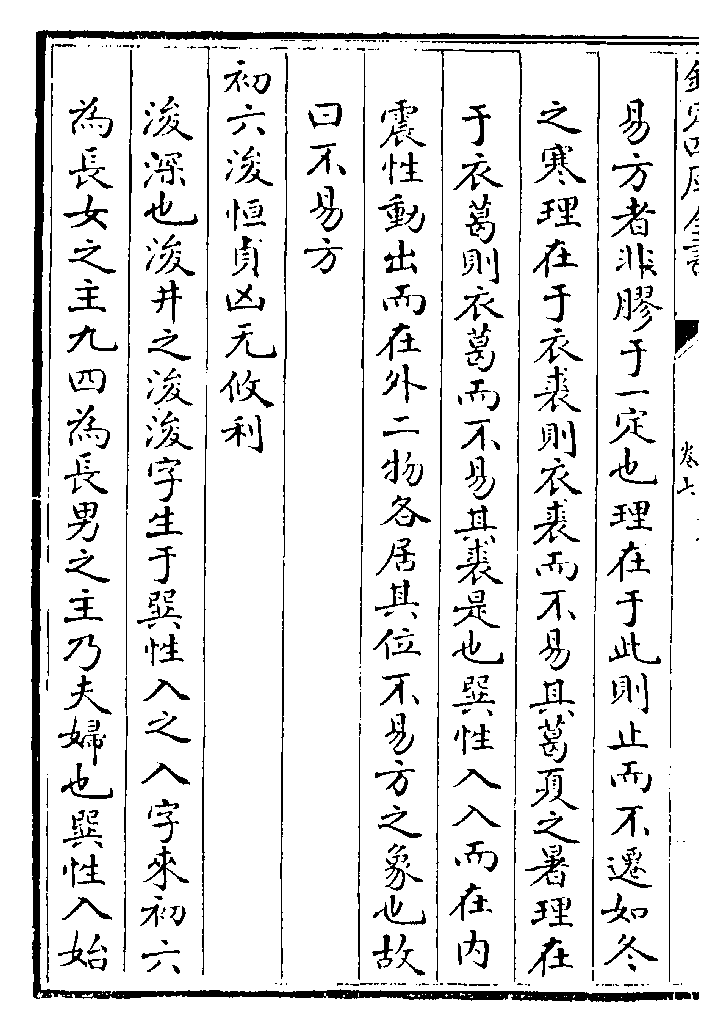 欽定四庫全書
卷七
易方者非膠于一定也理在于此則止而不遷如冬
之寒理在于衣裘則衣裘而不易其葛夏之暑理在
于衣葛則衣葛而不易其裘是也巽性入入而在内
震性動出而在外二物各居其位不易方之象也故
曰不易方
初六浚恒貞凶无攸利
浚深也浚井之浚浚字生于巽性入之入字來初六
為長女之主九四為長男之主乃夫婦也巽性入始